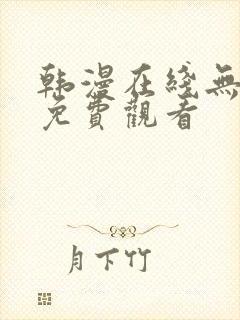 韩漫在綫無
免費觀看
月下竹